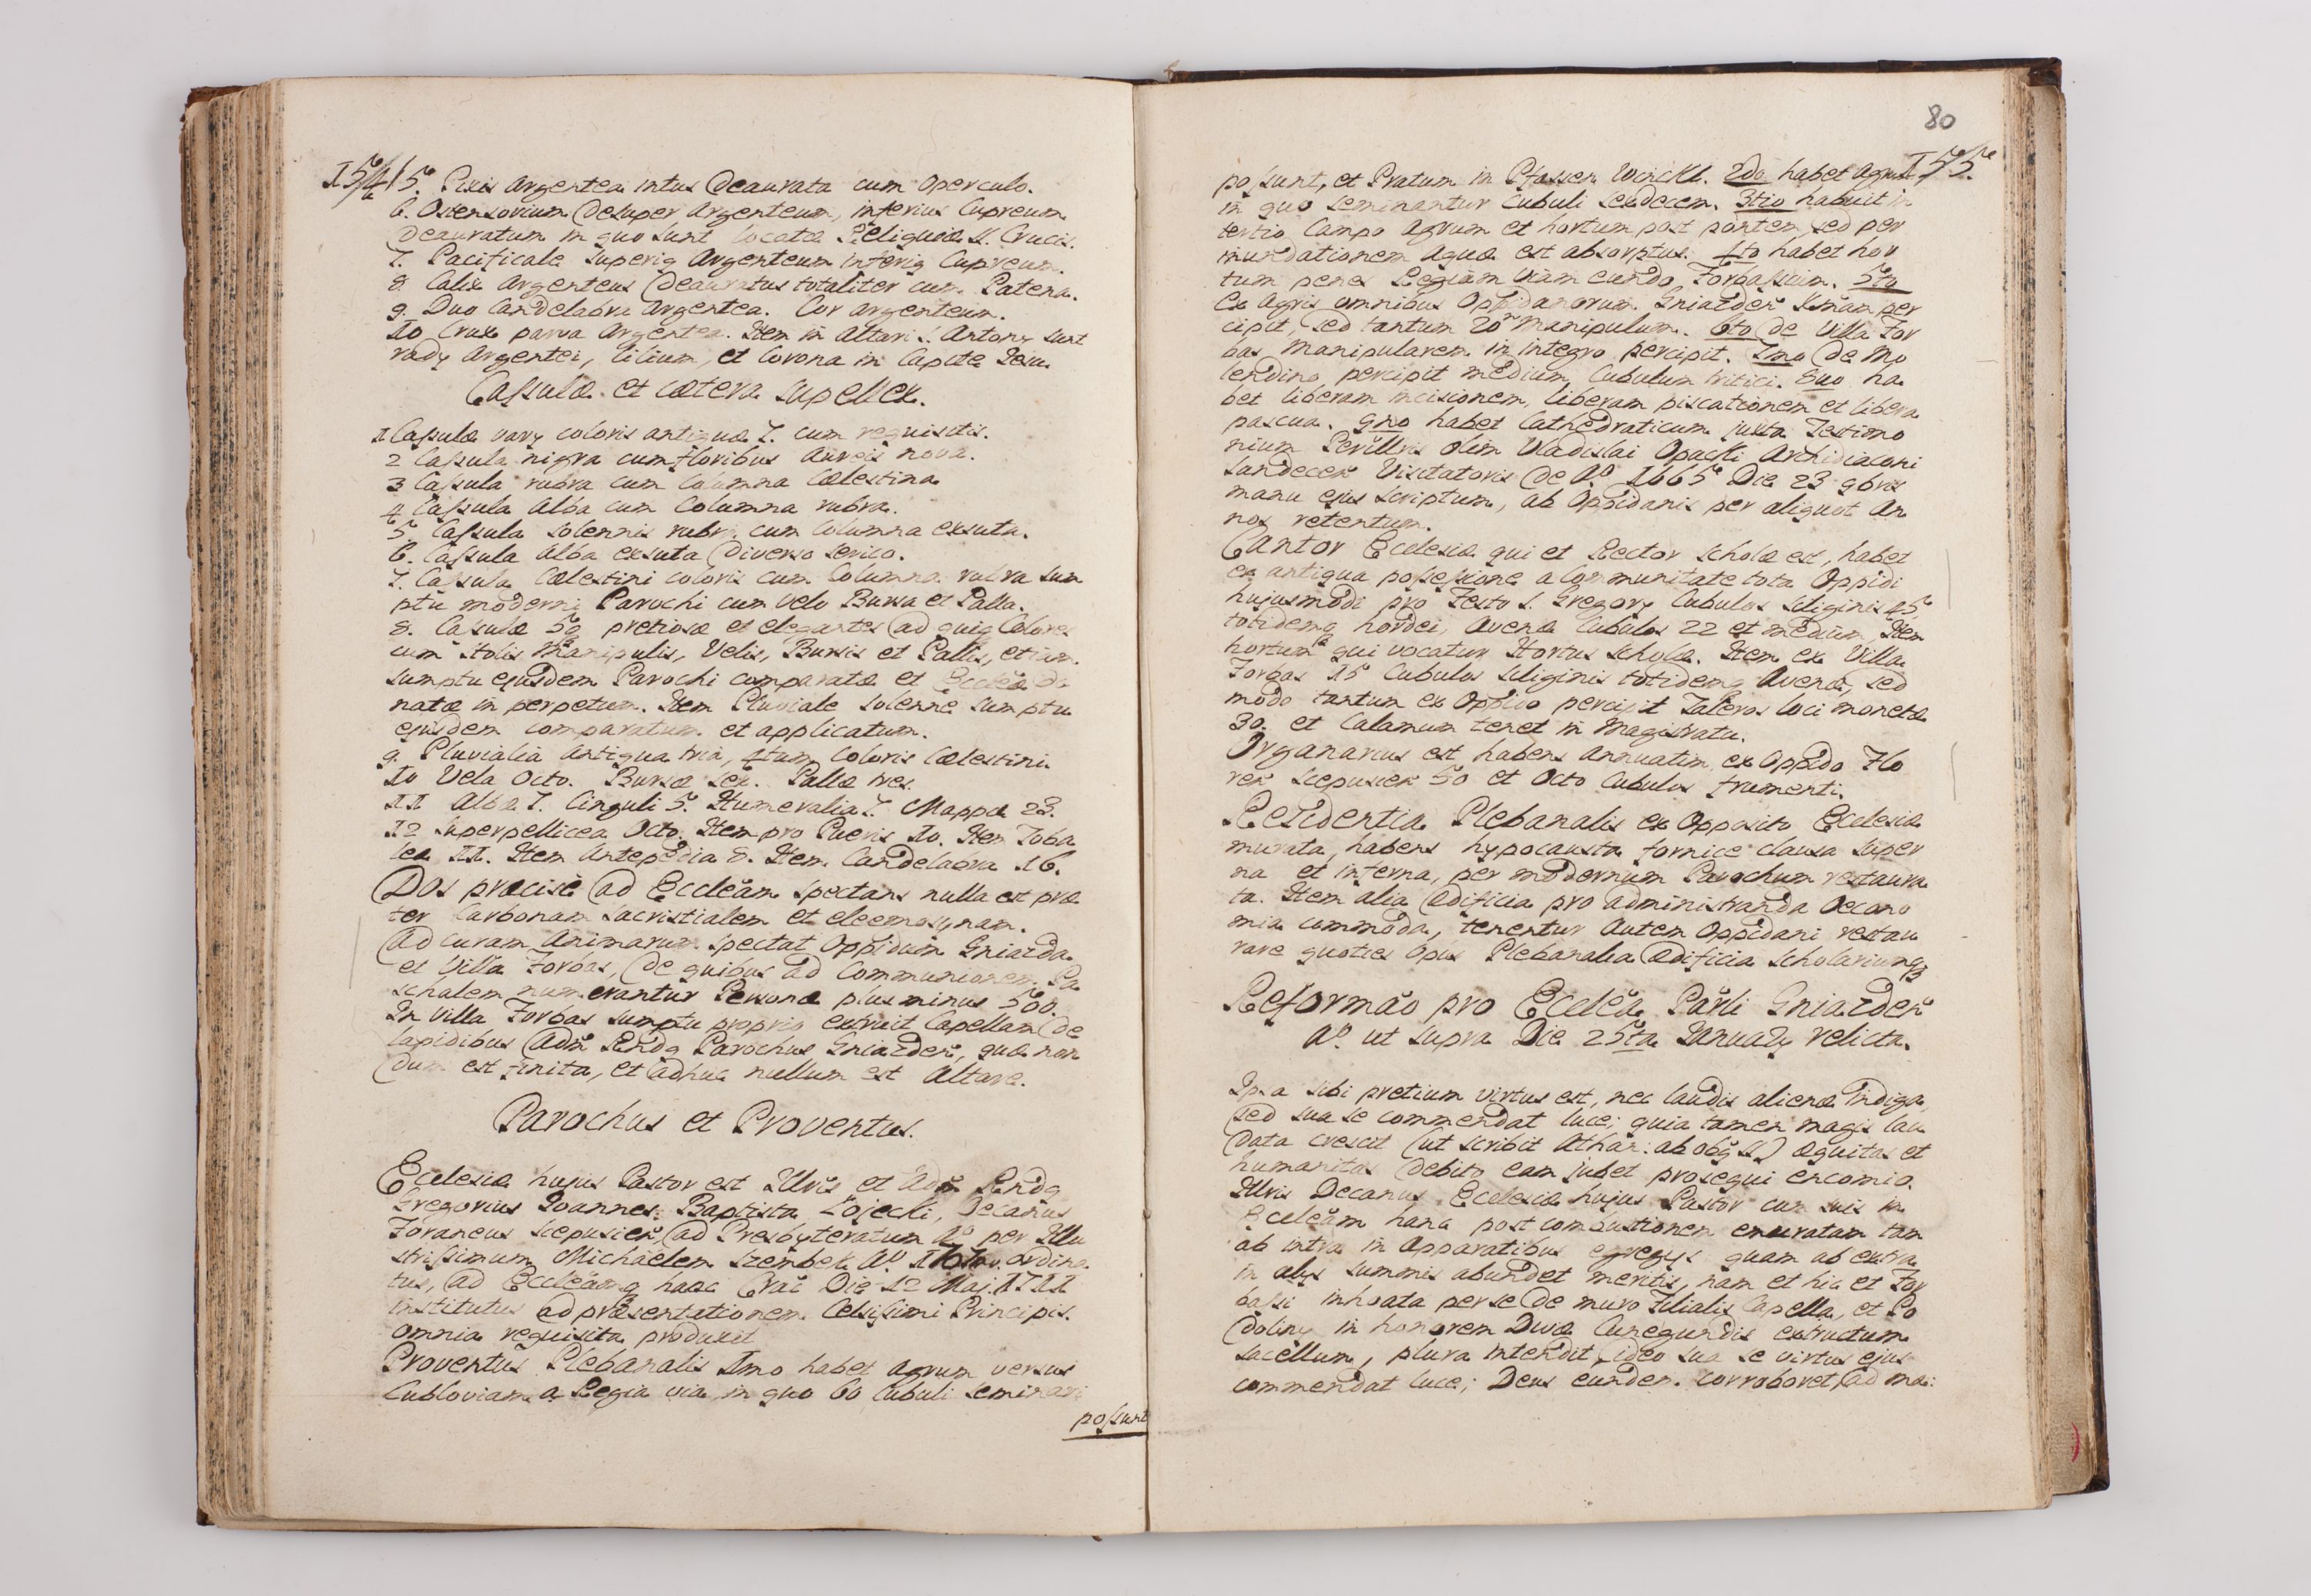 154
5. Pixis Argentea intus Deaurata cum operculo.
6. Ostensorium Desuper Argenteum, inferius Cupreum
Deauratum in quo sunt locatæ Reliquiæ S. Crucis.
7. Pacificale superiq Argenteum inferiq Cupreum.
8 Calix Argenteus Deauratus totaliter cum Patena.
9 Duo Candelabra Argentea. Cor argenteum.
10 Crux parva Argentea. Item in Altari S. Antony sunt
rady Argentei, Lilium, et Corona in Capite Jesu.
Cassulæ et cætera supellex.
1 Cassulæ vary coloris antiquæ 7. cum requisitis.
2 Cassula nigra cum floribus Aureis nova.
3 Cassula rubra cum Columna Cælestina
4 Cassula Alba cum Columna rubra.
5. Cassula solennis rubra cum Columna exsuta.
6. Cassula Alba exsuta Diverso serico.
7. Cassula Cælestini coloris cum Columna rubra sum
ptu moderni Parochi cum Velo Bursa et Palla.
8. Casulæ 5q pretiosæ et elegantes ad quiq Colores
cum Stolis Manipulis, Velis, Bursis et Pallis, etiam
sumptu ejusdem Parochi comparatæ et Eccleæ do
natæ in perpetuum. Item Pluviale solenne sumptu
ejusdem comparatum et applicatum.
9. Pluvialia Antiqua tria, 4tum Coloris Cælestini
10 Vela Octo. Bursæ sex. Pallæ tres.
11 Albæ 7. Cinguli 5. Humeralia 7. Mappæ 23.
12 Superpellicea Octo. Item pro Pueris 10. Item Toba
lea 11. Item Antepedia 8. Item Candelabra 16.
Dos præcisè ad Ecclesiam spectans nulla est præ
ter Carbonam Sacristialem et eleemosynam.
Ad curam Animarum spectat Oppidum Gniazda
et Villa Forbas, de quibus ad Communionem Pa
schalem numerantur Personæ plus minus 500.
In Villa Forbas sumptu proprio extruit Capellam de
lapidibus Adm Rndq Parochus Gniazdeñ, quæ non
dum est finita, et adhuc nullum est Altare.
Parochus et Proventus.
Ecclesiæ hujus Pastor est Illris et Adm Rndq
Gregorius Joannes Baptista Łojecki, Decanus
Foraneus Scepusieñ, ad Presbyteratum per Illu
strissimum Michaelem Szembek Ao ordina
tus, ad Eccleamq hanc Die Maj. 1711
institutus ad præsentationem Celsissimi Principis.
omnia requisita produxit
Proventus Plebanalis 1mo habet Agrum versus
Lubloviam a Regia via in quo 60 Cubuli seminari
possunt
80
155.
possunt, et Pratum in Pfassen Winckl. 2do habet agrum
in quo seminantur cubuli sexdecem. 3tio habuit in
tertio Campo Agrum et hortum post pontem sed per
inundationem Aquæ est absorptus. 4to habet hor
tum penes Regiam Viam eundo Forbassium. 5to
Ex Agris omnibus Oppidanorum Gniazdeñ per
cipit, sed tantum 20 Manipulum. 6to De Villa For
bas Manipularem in integro percipit. 7mo De Mo
lendino percipit medium Cubulum tritici. 8vo ha
bet liberam incisionem, liberam piscationem et libera
pascua. 9no habet Cathedraticum juxta Testimo
nium Perillris olim Vladislai Opacki Archidiaconi
Sandeceñ Visitatoris de Ao 1665 Die 23 9bris
manu ejus scriptum, ab Oppidanis per aliquot An
nos retentum.
Cantor Ecclesiæ qui et Rector Scholæ est, habet
ex antiqua possessione a Communitate tota Oppidi
hujusmodi pro Festo S. Gregory Cubulos siliginis 45
totidemq hordei, Avenæ Cubulos 22 et medium, Item
hortum qui vocatur Hortus Scholæ. Item ex Villa
Forbas 15 Cubulos siliginis totidemq Avenæ, sed
modo tantum ex Oppido percipit Taleros loci monetæ
30. et Calamum tenet in Magistratu.
Organarius est habens Annuatim ex Oppido Flo
reñ Scepusieñ 50 et Octo Cubulos frumenti.
Residentia Plebanalis ex Opposito Ecclesiæ
murata, habens hypocausta fornice clausa super
na et inferna, per modernum Parochum restaura
ta. Item alia ædificia pro administranda Oecono
mia commoda, tenentur Autem Oppidani restau
rare quoties opus Plebanalia ædificia scholariumq3
Reformão pro Ecclea Parli Gniazdeñ
Ao ut supra Die 25ta January relicta.
Ipsa sibi pretium virtus est, nec laudis alienæ Indiga,
sed sua se commendat luce; quia tamen magis lau
data crescit (ut scribit Athan: ab obq SS) æquitas et
humanitas debito eam jubet prosequi encomio.
Illris Decanus Ecclesiæ hujus Pastor cum suis in
Eccleam hanc post combustionem emuratam tam
ab intra in Apparatibus egregys quam ab extra
in alys summis abundet meritis, nam et hic et For
bassi inhoata per se de muro Filialis Capella, et Po
doliny in honorem Divæ Cunegundis extructum
sacellum, plura intendit, ideo sua se virtus ejus
commendat luce; Deus eundem corroboret, ad ma: